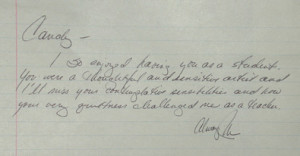 Candy –
I so enjoyed having you as a student.
You were a thoughtful and sensitive artist and
I'll miss your contemplative sensitivities and how
your very quietness challenged me as a teacher.